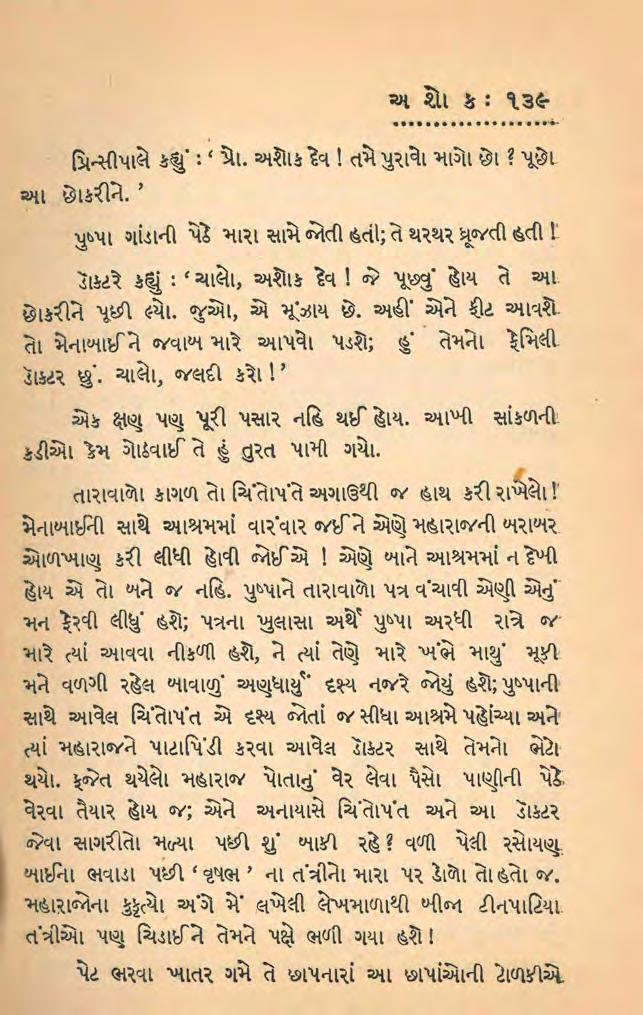 અ શો ક : ૧૩૯
પ્રિન્સીપાલે કહ્યું : ‘ પ્રો. અશોક દેવ ! તમે પુરાવો માગો છો ? પૂછો
આ છોકરીને. ’
પુષ્પા ગાંડાની પેઠે મારા સામે જોતી હતી; તે થરથર ધ્રૂજતી હતી !
ડૉક્ટરે કહ્યું : ‘ ચાલો, અશોક દેવ ! જે પૂછવું હોય તે આ
છોકરીને પૂછી લ્યો. જુઓ, એ મૂંઝાય છે. અહીં એને ફીટ આવશે
તો મેનાબાઈને જવાબ મારે આપવો પડશે; હું તેમનો ફેમિલી
ડૉક્ટર છું. ચાલો, જલદી કરો !’
એક ક્ષણ પણ પૂરી પસાર નહિ થઈ હોય. આખી સાંકળની
કડીઓ કેમ ગોઠવાઈ તે હું તુરત પામી ગયો.
તારાવાળો કાગળ તો ચિંતોપંતે અગાઉથી જ હાથ કરી રાખેલો !
મેનાબાઈની સાથે આશ્રમમાં વારંવાર જઈને એણે મહારાજની બરાબર
ઓળખાણ કરી લીધી હોવી જોઈએ ! એણે બાને આશ્રમમાં ન દેખી
હોય એ તો બને જ નહિ. પુષ્પાને તારાવાળો પત્ર વંચાવી એણી એનું
મન ફેરવી લીધું હશે; પત્રના ખુલાસા અર્થે પુષ્પા અરધી રાત્રે જ
મારે ત્યાં આવવા નીકળી હશે, ને ત્યાં તેણે મારે ખંભે માથું મૂકી
મને વળગી રહેલ બાવાળું અણધાર્યું દૃશ્ય નજરે જોયું હશે; પુષ્પાની
સાથે આવેલ ચિંતોપંત એ દૃશ્ય જોતાં જ સીધા આશ્રમે પહોંચ્યા અને
ત્યાં મહારાજને પાટાપિંડી કરવા આવેલ ડૉક્ટર સાથે તેમનો ભેટો
થયો. ફજેત થયેલો મહારાજ પોતાનું વેર લેવા પૈસો પાણીની પેઠે
વેરવા તૈયાર હોય જ; એને અનાયાસે ચિંતોપંત અને આ ડૉક્ટર
જેવા સાગરીતો મળ્યા પછી શું બાકી રહે ? વળી પેલી રસોયણ
બાઈના ભવાડા પછી ‘ વૃષભ ’ ના તંત્રીનો મારા પર ડોળો તો હતો જ.
મહારાજોના કુકૃત્યો અંગે મેં લખેલી લેખમાળાથી બીજા ટીનપાટિયા
તંત્રીઓ પણ ચિડાઈને તેમને પક્ષે ભળી ગયા હશે !
પેટ ભરવા ખાતર ગમે તે છાપનારાં આ છાપાંઓની ટોળકીએ